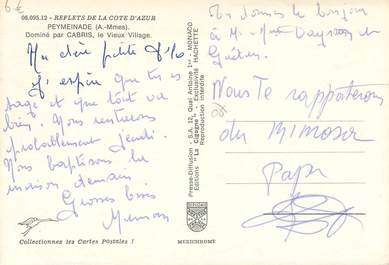 6€
06.095.12 - REFLETS DE LA COTE D'AZUR
PEYMEINADE (A.-Mmes).
Dominé par CABRIS, le Vieux Village.
Ma chère petite
J'espère que tu es
sage et que tout va
bien. Nous rentrerons
probablement jeudi.
Nous baptisons la
maison demain
Grosses bises
Maman
Collectionnez les Cartes Postales !
Presse-Diffusion - S.A. 12, Quai Antoine 1er - MONACO
Editions "La Cigogne" - Exclusivité HACHETTE
Reproduction interdite
MEXICHROME
Tu donnes le bonjour
à M. Mme
Nous Te rapporterons
du Mimosa
Papa